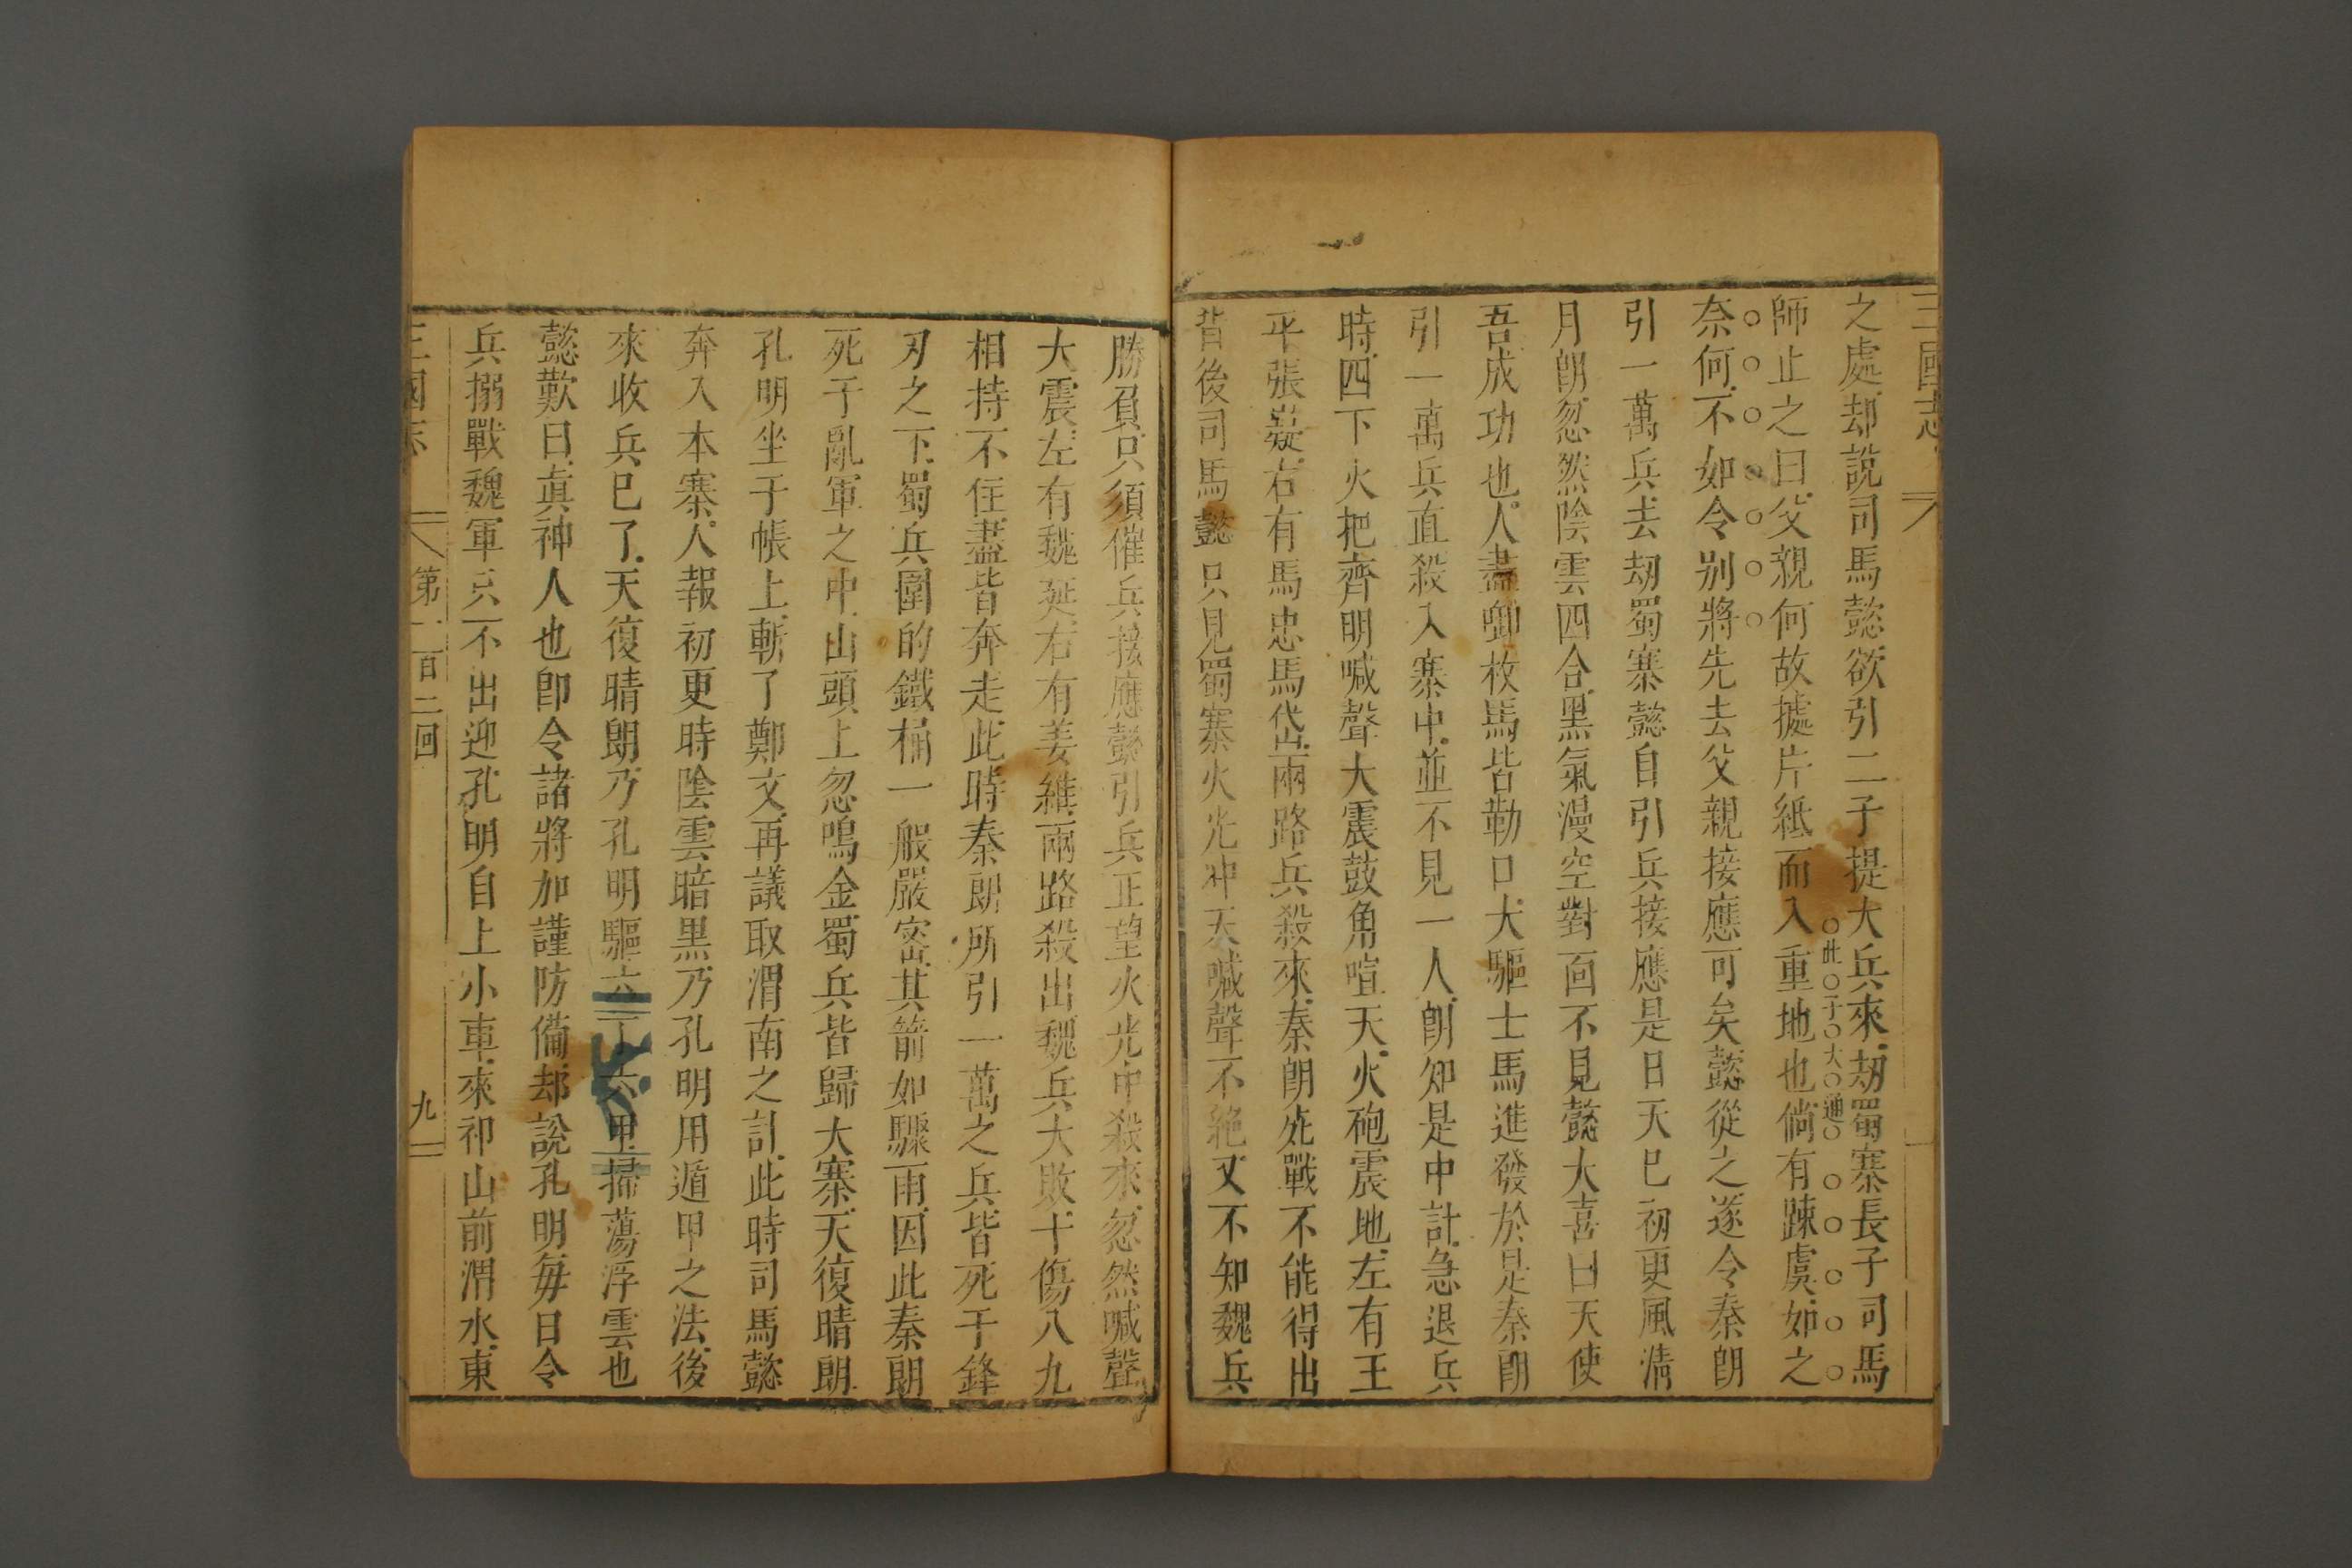 三國志
之處却說司馬懿欲引二子提大兵來刼蜀寨長子司馬
此子大通
師止之曰父親何故據片紙而入重地也倘有踈虞如之
奈何不如令别將先去父親接應可矣懿從之遂令秦朗
引一萬兵去刼蜀寨懿自引兵接應是日天巳初更風清
月朗忽然陰雲四合黑氣漫空對面不見懿大喜曰天使
吾成功也人盡啣枚馬皆勒口大驅士馬進發於是秦朗
引一萬兵直殺入寨中並不見一人朗知是中計急退兵
時四下火把齊明喊聲大震鼓角喧天火砲震地左有王
平張嶷右有馬忠馬岱兩路兵殺來秦朗死戰不能得出
背後司馬懿只見蜀寨火光冲天喊聲不絶又不知魏兵
勝負只須催兵接應懿引兵正望火光中殺來忽然喊聲
大震左有魏延右有姜維兩路殺出魏兵大敗十傷八九
相持不住盡皆奔走此時秦朗所引一萬之兵皆死于鋒
刃之下蜀兵圍的鐵桶一般嚴密其箭如驟雨因此秦朗
死于亂軍之中山頭上忽鳴金蜀兵皆歸大寨天復晴朗
孔明坐于帳上斬了鄭文再議取渭南之計此時司馬懿
奔入本寨人報初更時陰雲暗黑乃孔明用遁甲之法後
來收兵巳了天復晴朗乃孔明驅六丁六甲掃蕩浮雲也
懿歎曰眞神人也卽令諸將加謹防備却說孔明每日令
兵搦戰魏軍只不出迎孔明自上小車來祁山前渭水東
三國志 第一百二回 九